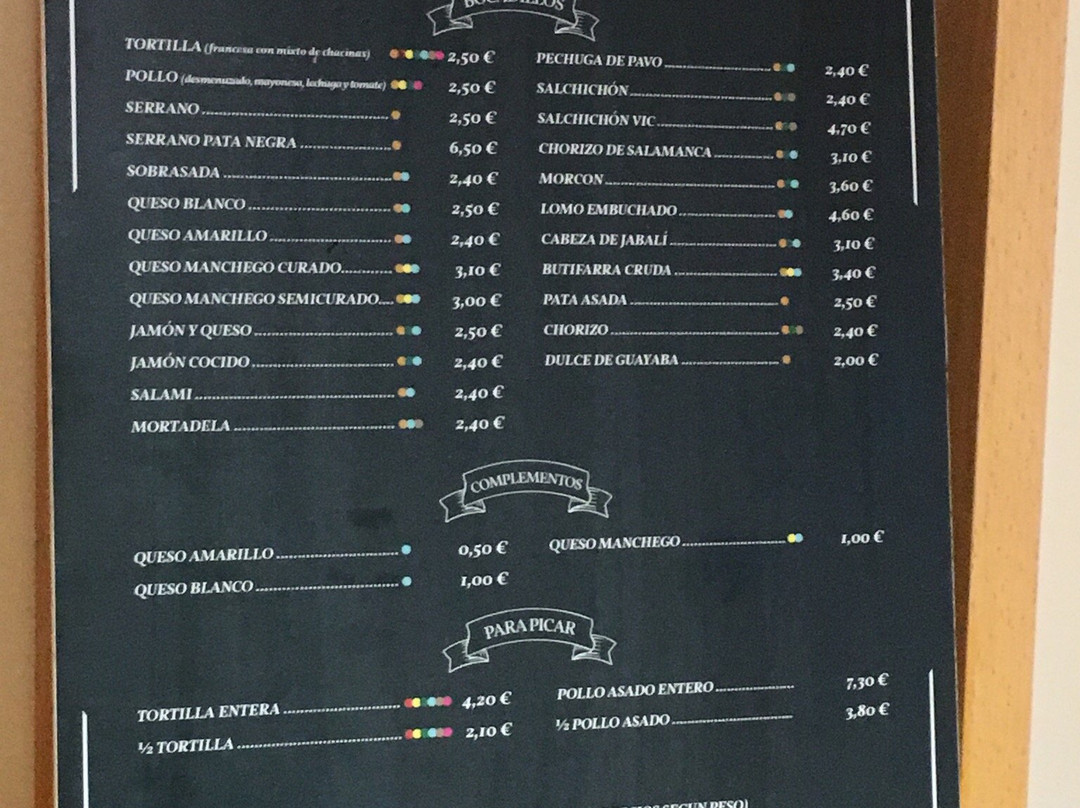 BOCADILLOS
TORTILLA (francesa con mixto de chacinas) 2,50 €
POLLO (desmenuzado, mayonesa, lechuga y tomate) 2,50 €
SERRANO 2,50 €
SERRANO PATA NEGRA 6,50 €
SOBRASADA 2,40 €
QUESO BLANCO 2,50 €
QUESO AMARILLO 2,40 €
QUESO MANCHEGO CURADO 3,10 €
QUESO MANCHEGO SEMICURADO 3,00 €
JAMÓN Y QUESO 2,50 €
JAMÓN COCIDO 2,40 €
SALAMI 2,40 €
MORTADELA 2,40 €
PECHUGA DE PAVO 2,40 €
SALCHICHÓN 2,40 €
SALCHICHÓN VIC 4,70 €
CHORIZO DE SALAMANCA 3,10 €
MORCON 3,60 €
LOMO EMBUCHADO 4,60 €
CABEZA DE JABALÍ 3,10 €
BUTIFARRA CRUDA 3,40 €
PATA ASADA 2,50 €
CHORIZO 2,40 €
DULCE DE GUAYABA 2,00 €
COMPLEMENTOS
QUESO AMARILLO 0,50 €
QUESO BLANCO 1,00 €
QUESO MANCHEGO 1,00 €
PARA PICAR
TORTILLA ENTERA 4,20 €
½ TORTILLA 2,10 €
POLLO ASADO ENTERO 7,30 €
½ POLLO ASADO 3,80 €
SEGUN PESO)